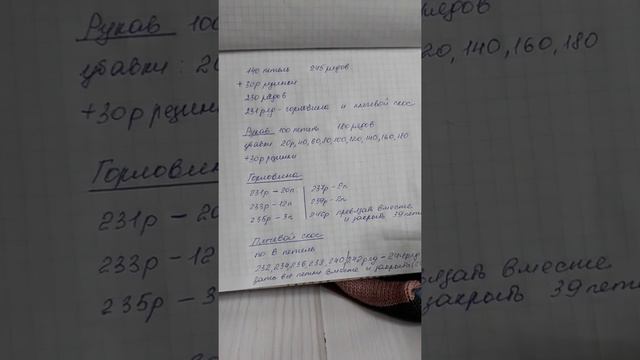 140 петель 245 рядов
+ 30р резинки
230 рядов
231 ряд - горловина и плечевой скос
Рукав 100 петель 180 рядов
убавки 20р, 40, 60, 80, 100, 120, 140, 160, 180
+30р резинки
Горловина
231р - 20п
233р - 12п
235р - 3п
237р - 2п
239р - 2п
245р провязать вместе
и закрыть 39 пете
Плечевой скос
по 8 петель
232, 234, 236, 238, 240, 242 ряд -
все петли вместе и закрыть
Рукав 100
рядов
убавки: 20
20, 140, 160, 180
+30р резинки
Горловина
231р - 20
233р - 12
235р - 3
вместе
закрыть 39 пете